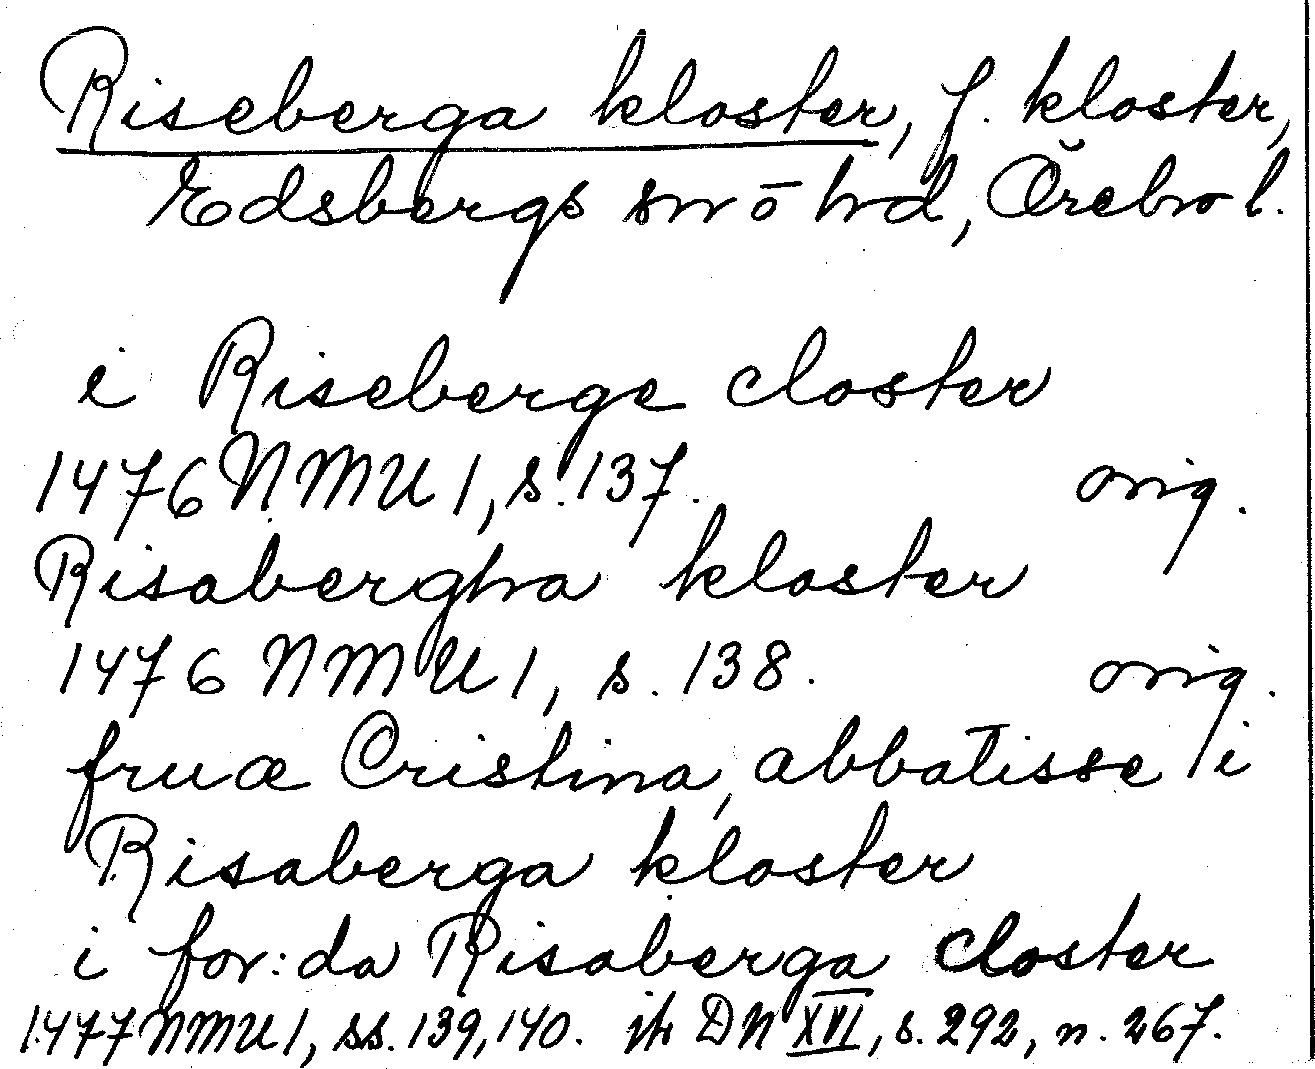 Riseberga kloster, f. kloster,
Edsbergs sn o hd, Örebro l.
i Riseberge closter
1476 NMU 1, s. 137. orig.
Risabergha kloster
1476 NMU 1, s. 138. orig.
fruæ Cristina, abbatisse i
Risaberga kloster
i for:da Risaberga closter
1477 NMU 1, ss. 139, 140. jfr DN XVI, s. 292, n. 267.